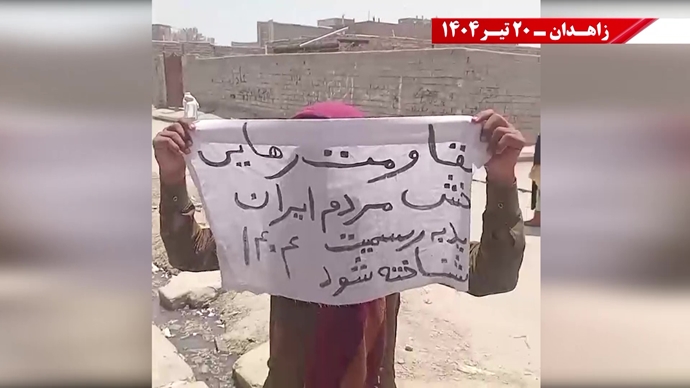 زاهدان ــ ۲۰ تیر ۱۴۰۴
قاومت رهایی
خش مردم ایران
ید به رسمیت
شناخته شود